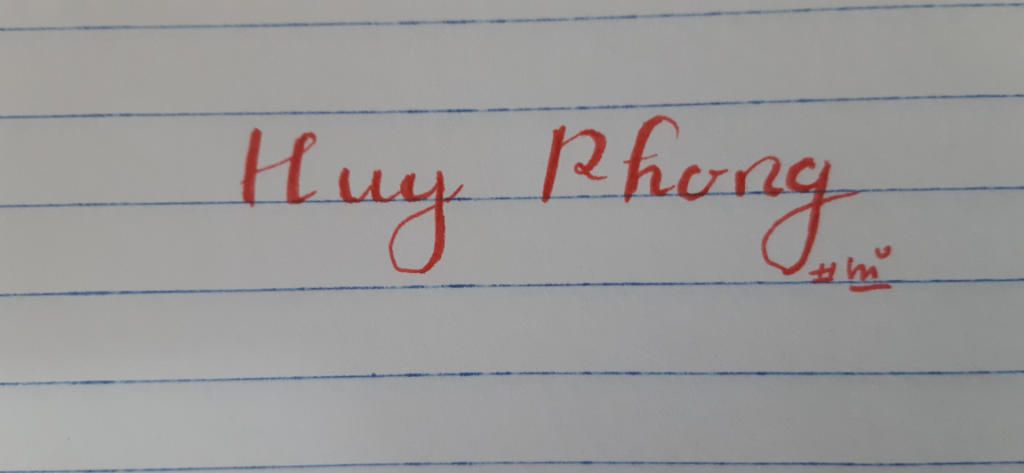 Huy Phong